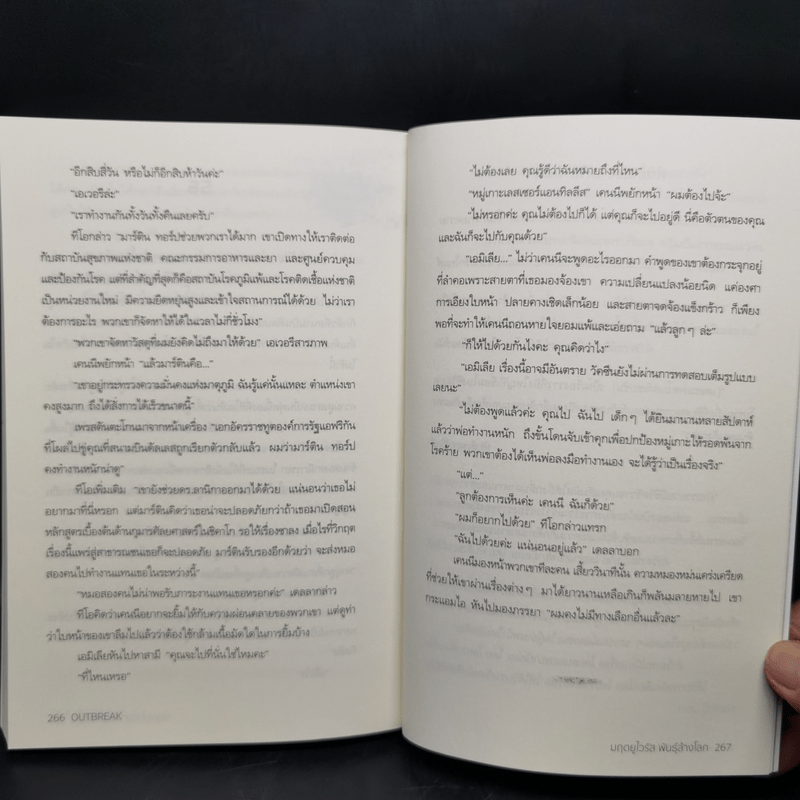 “อีกสิบสี่วัน หรือไม่ก็อีกสิบห้าวันค่ะ”
“เอเวอรีล่ะ”
“เราทำงานกันทั้งวันทั้งคืนเลยครับ”
ทีโอกล่าว “มาร์ติน ทอร์ปช่วยพวกเราได้มาก เขาเปิดทางให้เราติดต่อ
กับสถาบันสุขภาพแห่งชาติ คณะกรรมการอาหารและยา และศูนย์ควบคุม
และป้องกันโรค แต่ที่สำคัญที่สุดก็คือสถาบันโรคภูมิแพ้และโรคติดเชื้อแห่งชาติ
เป็นหน่วยงานใหม่ มีความยืดหยุ่นสูงและเข้าใจสถานการณ์ได้ด้วย ไม่ว่าเรา
ต้องการอะไร พวกเขาก็จัดหาให้ได้ในเวลาไม่กี่ชั่วโมง”
“พวกเขาจัดหาวัสดุที่ผมยังคิดไม่ถึงมาให้ด้วย” เอเวอรีสารภาพ
เคนนีพยักหน้า “แล้วมาร์ตินคือ...”
“เขาอยู่กระทรวงความมั่นคงแห่งมาตุภูมิ ฉันรู้แค่นั้นแหละ ตำแหน่งเขา
คงสูงมาก ถึงได้สั่งการได้เร็วขนาดนี้”
เพรสตันตะโกนมาจากหน้าเครื่อง “เอกอัครราชทูตองค์การรัฐแอฟริกัน
ที่โผล่ไปขู่คุณที่สนามบินดัลเลสถูกเรียกตัวกลับแล้ว ผมว่ามาร์ติน ทอร์ป
คงทำงานหนักน่าดู”
ทีโอเพิ่มเติม “เขายังช่วยดร.ลานิกาออกมาได้ด้วย แน่นอนว่าเธอไม่
อยากมาที่นี่หรอก แต่มาร์ตินคิดว่าเธอน่าจะปลอดภัยกว่าถ้าเธอมาเปิดสอน
หลักสูตรเบื้องต้นด้านกุมารศัลยศาสตร์ในชิคาโก รอให้เรื่องซาลง เมื่อไรที่วิกฤต
เรื่องนี้แพร่สู่สาธารณชนเธอก็จะปลอดภัย มาร์ตินรับรองอีกด้วยว่า จะส่งหมอ
สองคนไปทำงานแทนเธอในระหว่างนี้”
“หมอสองคนไม่น่าพอรับภาระงานแทนเธอหรอกค่ะ” เดลลากล่าว
ทีโอคิดว่าเคนนีอยากจะยิ้มให้กับความผ่อนคลายของพวกเขา แต่ดูท่า
ว่าใบหน้าของเขาลืมไปแล้วว่าต้องใช้กล้ามเนื้อมัดใดในการยิ้มบ้าง
เอมิเลียหันไปหาสามี “คุณจะไปที่นั่นใช่ไหมคะ”
“ที่ไหนเหรอ”
266 OUTBREAK
“ไม่ต้องเลย คุณรู้ดีว่าฉันหมายถึงที่ไหน”
“หมู่เกาะเลสเซอร์แอนทิลลีส” เคนนีพยักหน้า “ผมต้องไปจ้ะ”
“ไม่หรอกค่ะ คุณไม่ต้องไปก็ได้ แต่คุณก็จะไปอยู่ดี นี่คือตัวตนของคุณ
และฉันก็จะไปกับคุณด้วย”
“เอมิเลีย...” ไม่ว่าเคนนีจะพูดอะไรออกมา คำพูดของเขาต้องกระจุกอยู่
ที่ลำคอเพราะสายตาที่เธอมองจ้องเขา ความเปลี่ยนแปลงน้อยนิด แค่องศา
การเอียงใบหน้า ปลายคางเชิดเล็กน้อย และสายตาจดจ้องแข็งกร้าว ก็เพียง
พอที่จะทำให้เคนนีถอนหายใจยอมแพ้และเอ่ยถาม “แล้วลูกๆ ล่ะ”
“ก็ให้ไปด้วยกันไงคะ คุณคิดว่าไง”
“เอมิเลีย เรื่องนี้อาจมีอันตราย วัคซีนยังไม่ผ่านการทดสอบเต็มรูปแบบ
เลยนะ”
“ไม่ต้องพูดแล้วค่ะ คุณไป ฉันไป เด็กๆ ได้ยินมานานหลายสัปดาห์
แล้วว่าพ่อทำงานหนัก ถึงขั้นโดนจับเข้าคุกเพื่อปกป้องหมู่เกาะให้รอดพ้นจาก
โรคร้าย พวกเขาต้องได้เห็นพ่อลงมือทำงานเอง จะได้รู้ว่าเป็นเรื่องจริง”
“แต่...”
“ลูกต้องการเห็นค่ะ เคนนี ฉันก็ด้วย”
“ผมก็อยากไปด้วย” ทีโอกล่าวแทรก
“ฉันไปด้วยค่ะ แน่นอนอยู่แล้ว” เดลลาบอก
เคนนีมองหน้าพวกเขาทีละคน เสี้ยววินาทีนั้น ความหมองหม่นเคร่งเครียด
ที่ช่วยให้เขาผ่านเรื่องต่างๆ มาได้ยาวนานเหลือเกินก็พลันมลายหายไป เขา
กระแอมไอ หันไปมองภรรยา “ผมคงไม่มีทางเลือกอื่นแล้วละ”
มฤตยูไวรัส พันธุ์ล้างโลก 267